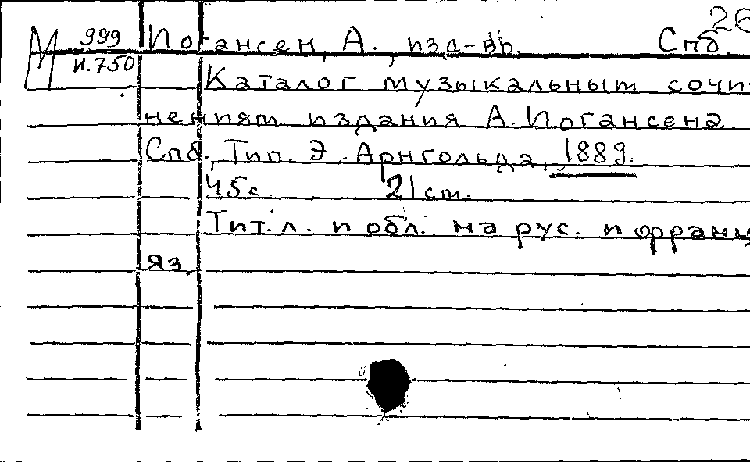 26
М 999 Иогансен, А., изд-во. Спб.
И.750
Каталог музыкальным сочи
нениям издания А. Иогансена
Спб., Тип. Э. Арнгольда, 1889.
45с. 21 ст.
Тит. л. и обл. на рус. и франц
яз.